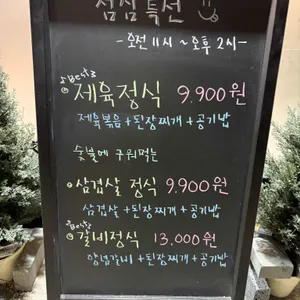 점심특선
-오전 11시 ~ 오후 2시-
Best
제육정식 9.900원
제육볶음 + 된장찌개 + 공기밥
숯불에 구워먹는
삼겹살 정식 9.900원
삼겹살 + 된장찌개 + 공기밥
Best
갈비정식 13.000원
양념갈비 + 된장찌개 + 공기밥